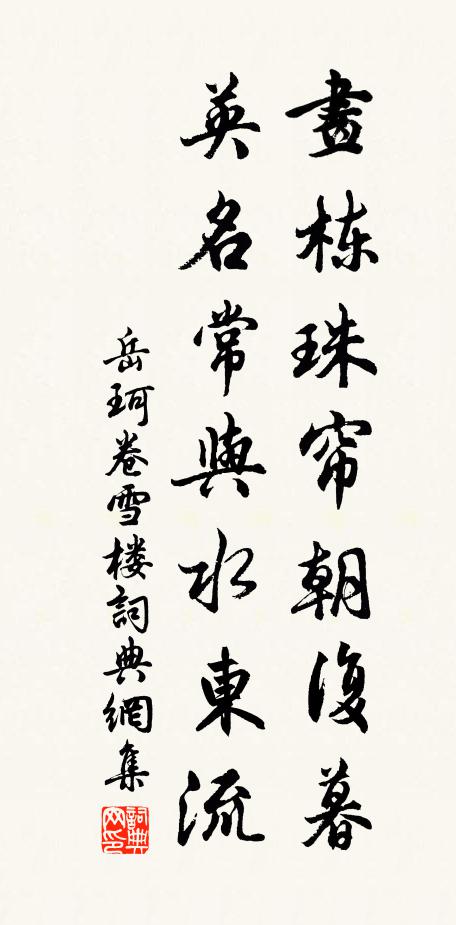 畫栋珠帘朝復暮
英名常與水東流
岳珂卷雪楼詞典網集
詞典网印